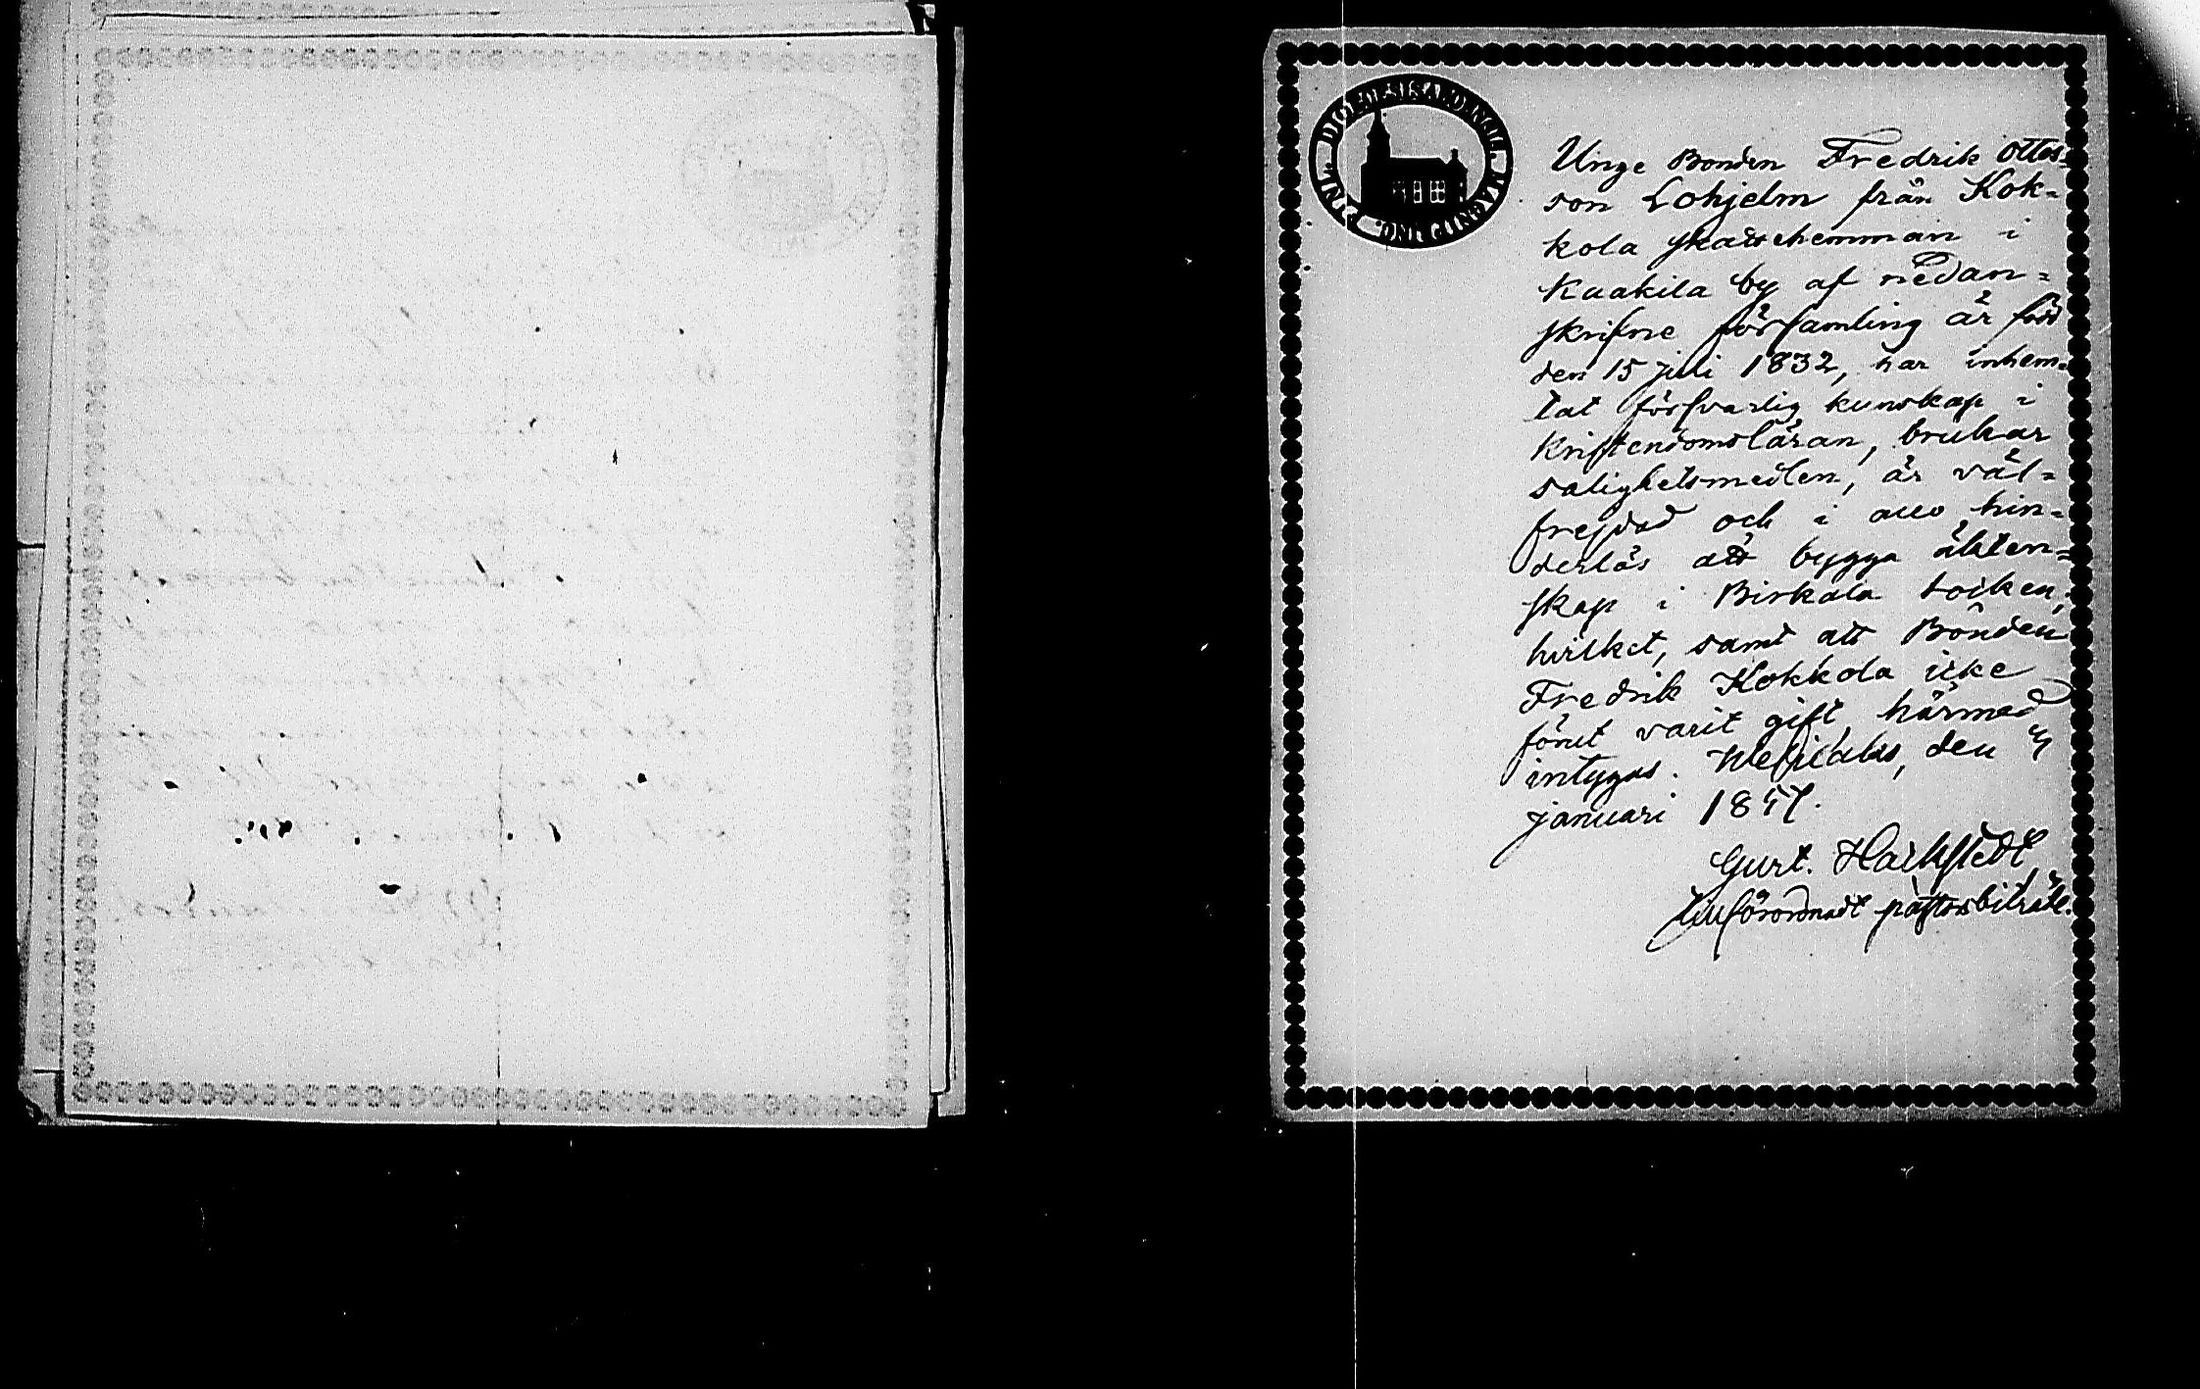 DIOECESIS ABOENSIS. MAGNI PRINC. FINL.
Unge Bonden Fredrik Ottos-
son Lohjelm från Kok-
kola skattehemman i
Kuakila by af nedan-
skrifne församling är född
den 15 juli 1832, har inhem-
tat försvarlig kunskap i
kristendomsläran, brukar
salighetsmedlen, är väl-
frejdad och i allo hin-
derlös att bygga äkten-
skap i Birkala socken,
hvilket, samt att Bonden
Fredrik Kokkola icke
förut varit gift, härmed
intygas. Wesilaks, den 4
januari 1857.
Gust.
pastorsbiträde.